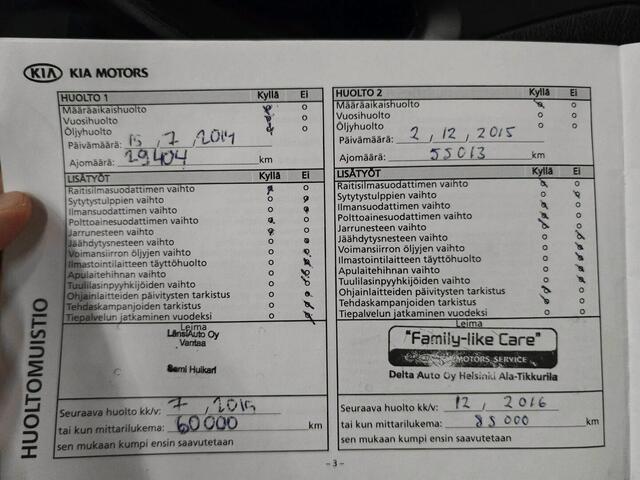 KIA KIA MOTORS
HUOLTO 1 Kyllä Ei
Määräaikaishuolto
Vuosihuolto
Öljyhuolto
Päivämäärä: 15, 7, 2014
Ajomäärä: 29404 km
LISÄTYÖT Kyllä Ei
Raitisilmasuodattimen vaihto
Sytytystulppien vaihto
Ilmansuodattimen vaihto
Polttoainesuodattimen vaihto
Jarrunesteen vaihto
Jäähdytysnesteen vaihto
Voimansiirron öljyjen vaihto
Ilmastointilaitteen täyttöhuolto
Apulaitehihnan vaihto
Tuulilasinpyyhkijöiden vaihto
Ohjainlaitteiden päivitysten tarkistus
Tehdaskampanjoiden tarkistus
Tiepalvelun jatkaminen vuodeksi
Leima
LänsiAuto Oy
Vantaa
Sami Huikari
Seuraava huolto kk/v: 7, 2015
tai kun mittarilukema: 60000 km
sen mukaan kumpi ensin saavutetaan
HUOLTO 2 Kyllä Ei
Määräaikaishuolto
Vuosihuolto
Öljyhuolto
Päivämäärä: 2, 12, 2015
Ajomäärä: 55013 km
LISÄTYÖT Kyllä Ei
Raitisilmasuodattimen vaihto
Sytytystulppien vaihto
Ilmansuodattimen vaihto
Polttoainesuodattimen vaihto
Jarrunesteen vaihto
Jäähdytysnesteen vaihto
Voimansiirron öljyjen vaihto
Ilmastointilaitteen täyttöhuolto
Apulaitehihnan vaihto
Tuulilasinpyyhkijöiden vaihto
Ohjainlaitteiden päivitysten tarkistus
Tehdaskampanjoiden tarkistus
Tiepalvelun jatkaminen vuodeksi
Leima
"Family-like Care"
MOTORS SERVICE
Delta Auto Oy Helsinki Ala-Tikkurila
Seuraava huolto kk/v: 12, 2016
tai kun mittarilukema: 85000 km
sen mukaan kumpi ensin saavutetaan
HUOLTOMUISTIO
- 3 -